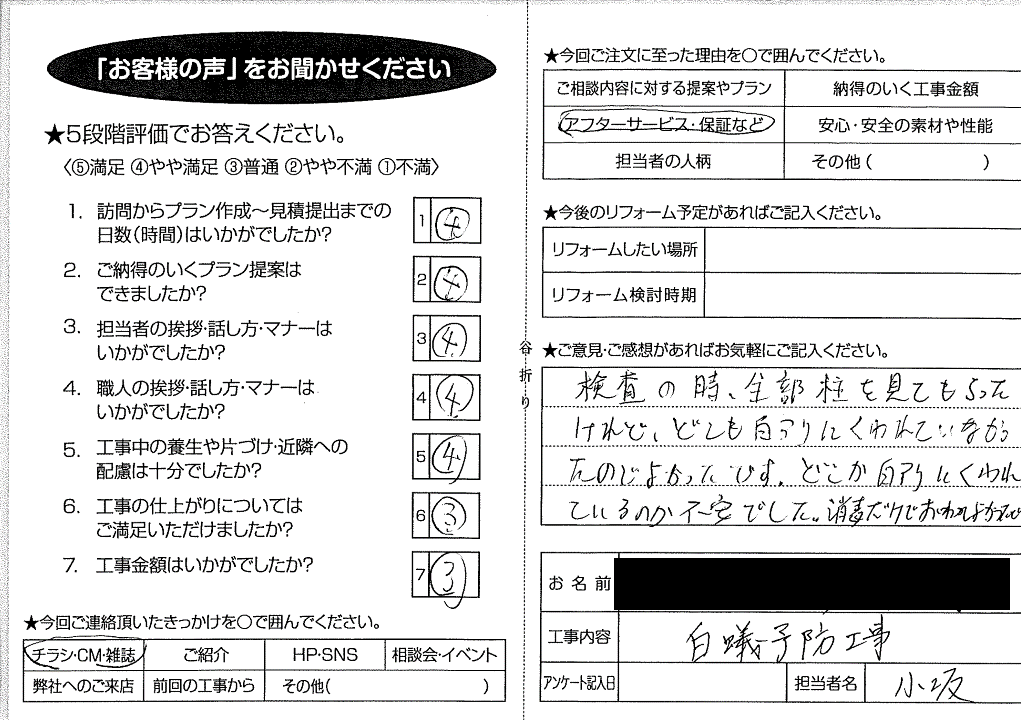 「お客様の声」をお聞かせください
★5段階評価でお答えください。
〈⑤満足 ④やや満足 ③普通 ②やや不満 ①不満〉
1. 訪問からプラン作成～見積提出までの
日数(時間)はいかがでしたか?
1 ④
2. ご納得のいくプラン提案は
できましたか?
2 ④
3. 担当者の挨拶・話し方・マナーは
いかがでしたか?
3 ④
4. 職人の挨拶・話し方・マナーは
いかがでしたか?
4 ④
5. 工事中の養生や片づけ・近隣への
配慮は十分でしたか?
5 ④
6. 工事の仕上がりについては
ご満足いただけましたか?
6 ③
7. 工事金額はいかがでしたか?
7 ③
★今回ご連絡頂いたきっかけを○で囲んでください。
チラシ・CM・雑誌 ご紹介 HP・SNS 相談会・イベント
弊社へのご来店 前回の工事から その他( )
谷折り
★今回ご注文に至った理由を○で囲んでください。
ご相談内容に対する提案やプラン 納得のいく工事金額
アフターサービス・保証など 安心・安全の素材や性能
担当者の人柄 その他( )
★今後のリフォーム予定があればご記入ください。
リフォームしたい場所
リフォーム検討時期
★ご意見・ご感想があればお気軽にご記入ください。
検査の時、全部柱を見てもらった
けれど、どこも白アリにくわれていなかっ
たのでよかったです。どこか白アリにくわれ
ているのか不安でした。消毒だけでおわれ
お名前
工事内容 白蟻予防工事
アンケート記入日 担当者名 小坂